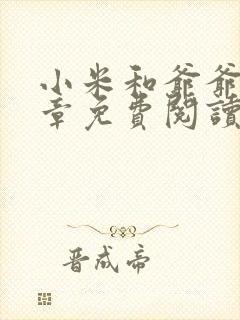 小米和爺爺
章免費閱讀
晋成帝